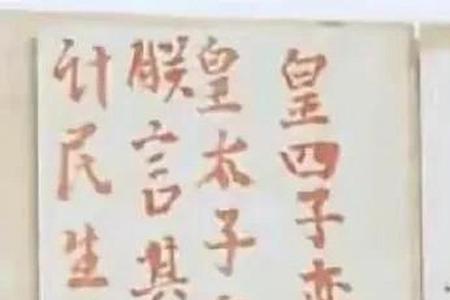 皇四子
皇太子
朕言其
计民生